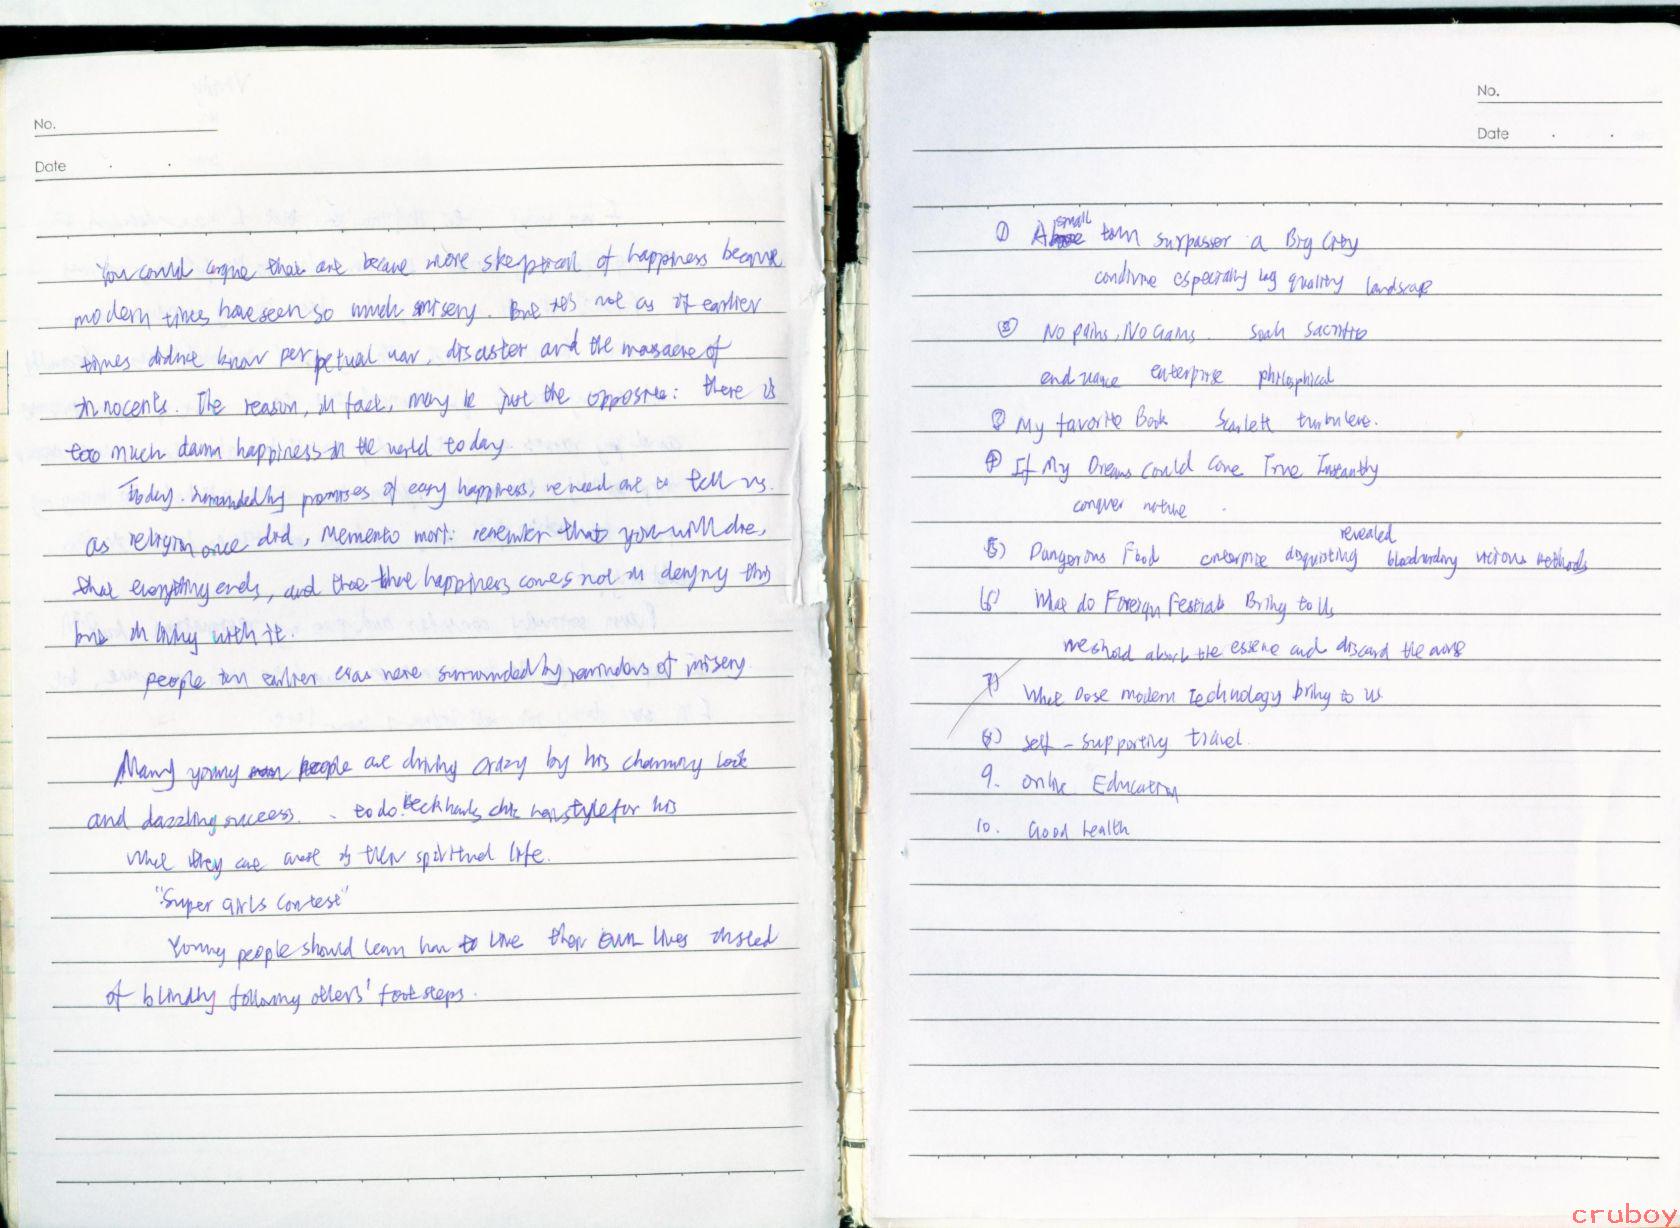 No.
Date
You could argue that art became more skeptical of happiness because
modern times have seen so much misery. But it's not as if earlier
times didn't know perpetual war, disaster and the massacre of
innocents. The reason, in fact, may be just the opposite: there is
too much damn happiness in the world today.
Today, surrounded by promises of easy happiness, we need art to tell us.
as religion once did, Memento mori: remember that you will die,
that everything ends, and that happiness comes not in denying this
but in living with it.
people in earlier eras were surrounded by reminders of misery.
Many young people are driving crazy by his charming look
and dazzling success. to do Beckham's chic hairstyle for his
What they are is their spiritual life.
"Super Girls Contest"
Young people should learn how to live their own lives instead
of blindly following others' footsteps.
No.
Date
① A small town surpasser a Big City
especially quality landscape
② No pains, No Gains. Soak sacrifice
endurance enterprise philosphical
③ My favorite Book Scarlett turbulence.
④ If My Dreams Could Come True Instantly
conquer nature
revealed
(5) Dangerous Food enterprise disgusting vicious methods
(6) What do Foreign Festivals Bring to Us
we should absorb the essence and discard the
7) What Dose modern technology bring to us
(8) Self-supporting travel.
9. online Education
10. Good health
cruboy